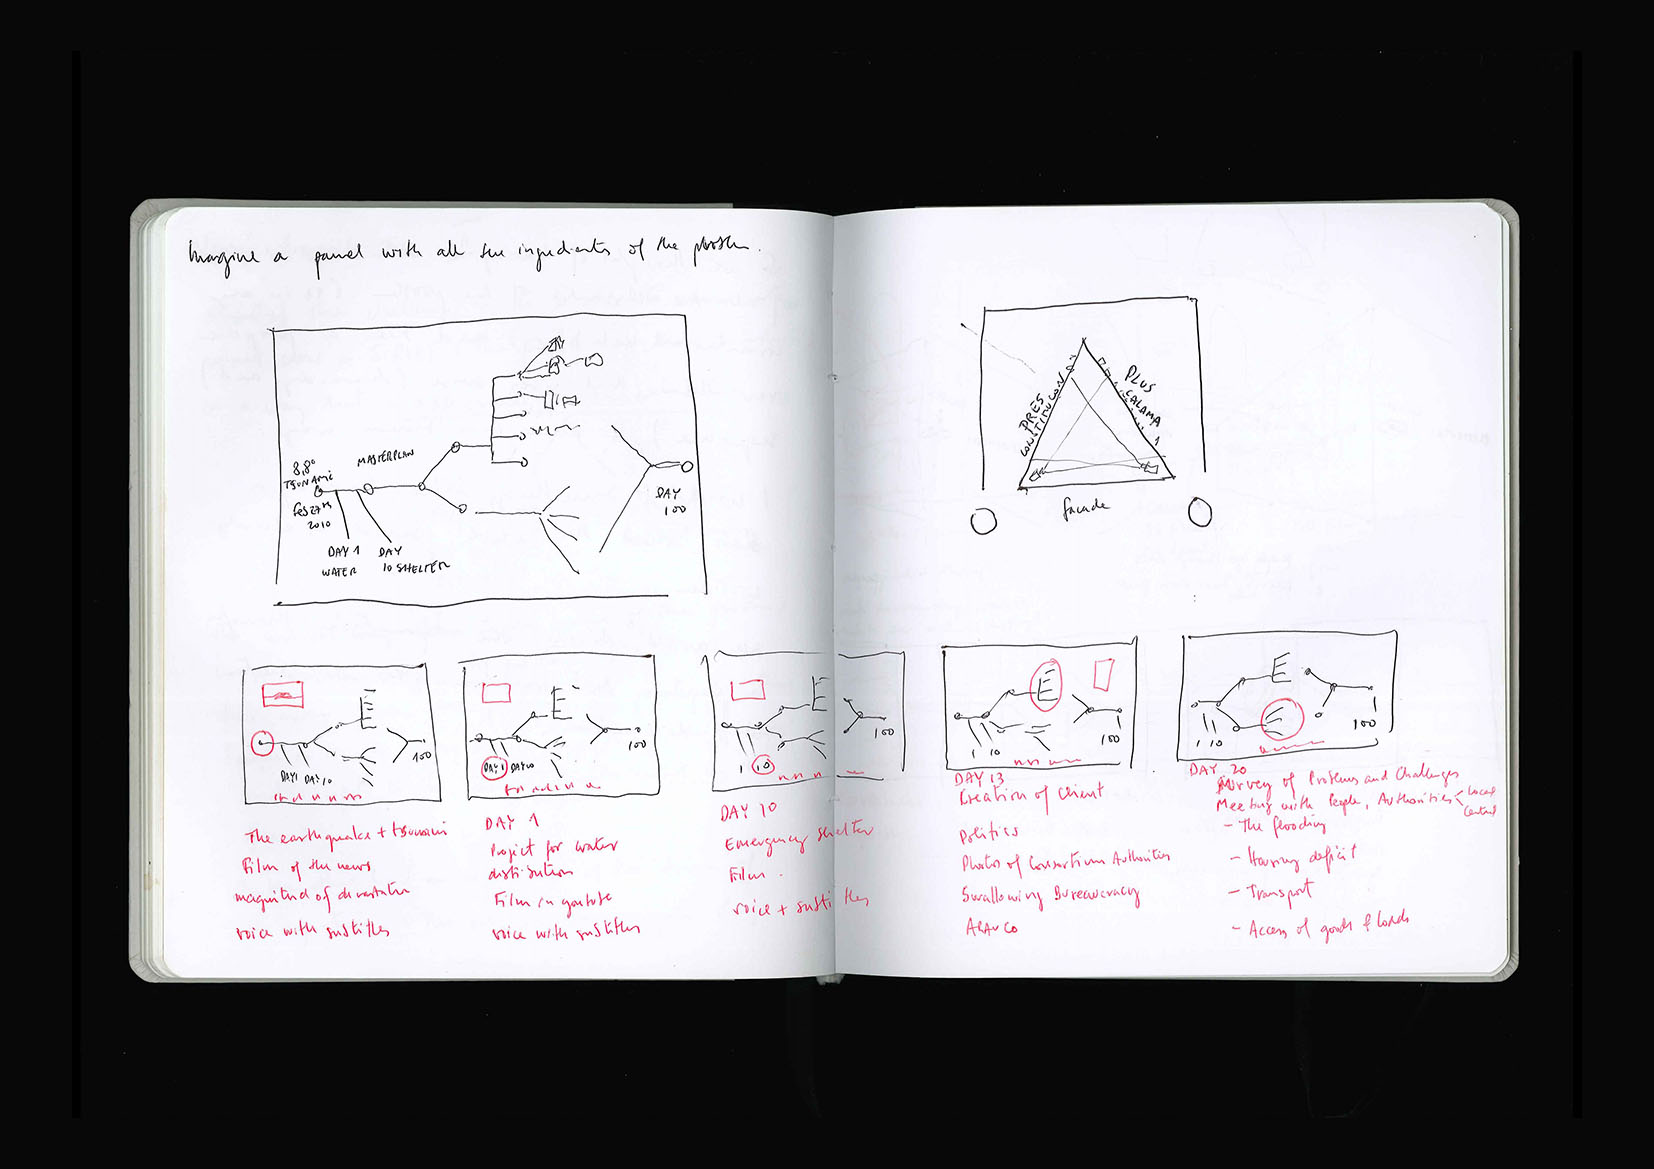 Imagine a panel with all the ingredients of the problem.
8,8°
TSUNAMI
FEB 27th
2010
MASTERPLAN
DAY 1
WATER
DAY
10 SHELTER
DAY
100
PRES
CONSTITUCION
PLUS
CALAMA
facade
DAY 1 DAY 10
100
The earthquake + tsunami
Film of the news
magnitud of devastation
voice with subtitles
DAY 1 DAY 10
100
DAY 1
Project for water
distribution
Film in youtube
voice with subtitles
1 10
100
DAY 10
Emergency shelter
Film.
voice + subtitles
1 10
100
DAY 13
Creation of Client
Politics
Photos of Consortium Authorities
Swallowing Bureaucracy
ARAUCO
1 10
100
DAY 20
Survey of Problems and Challenges
Meeting with People, Authorities < Local
Central
- The flooding
- Housing deficit
- Transport
- Access of goods & loads